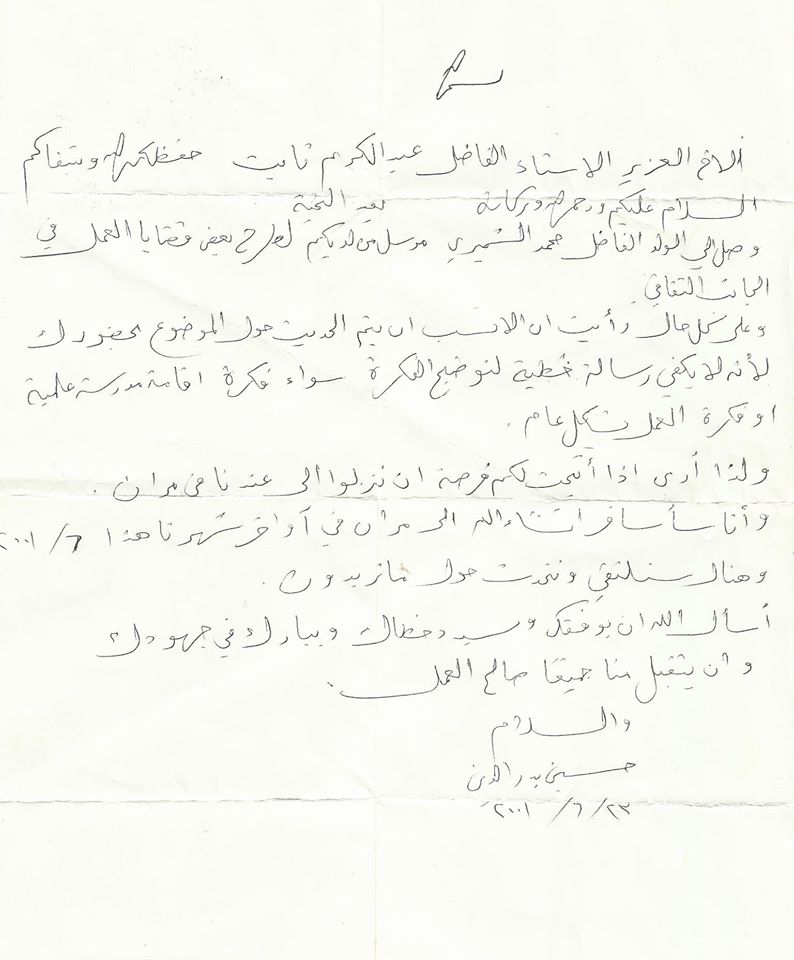 الأخ العزيز الاستاذ الفاضل عبدالكريم ثابت حفظكم الله وشفاكم
السلام عليكم ورحمة الله وبركاته بعد التحية
وصل إلي الولد الفاضل محمد الشميري مرسل من لديكم لطرح بعض قضايا العمل في
الجانب الثقافي
وعلى كل حال رأيت ان الانسب ان يتم الحديث حول الموضوع بحضورك
لأنه لا يكفي رسالة خطية لتوضيح الفكرة سواء فكرة اقامة مدرسة علمية
او فكرة العمل بشكل عام .
ولذا أرى اذا أتيحت لكم فرصة ان تنزلوا الى عندنا في مران .
وأنا سأسافر انشاء الله الى مران في أواخر شهرنا هذا ٦/ ٢٠٠١
وهناك سنلتقي ونتحدث حول ما تريدون .
أسأل الله ان يوفقك ويسدد خطاك ويبارك في جهودك
وان يتقبل منا جميعا صالح العمل .
والسلام
حسين بدرالدين
٢٣/ ٦/ ٢٠٠١